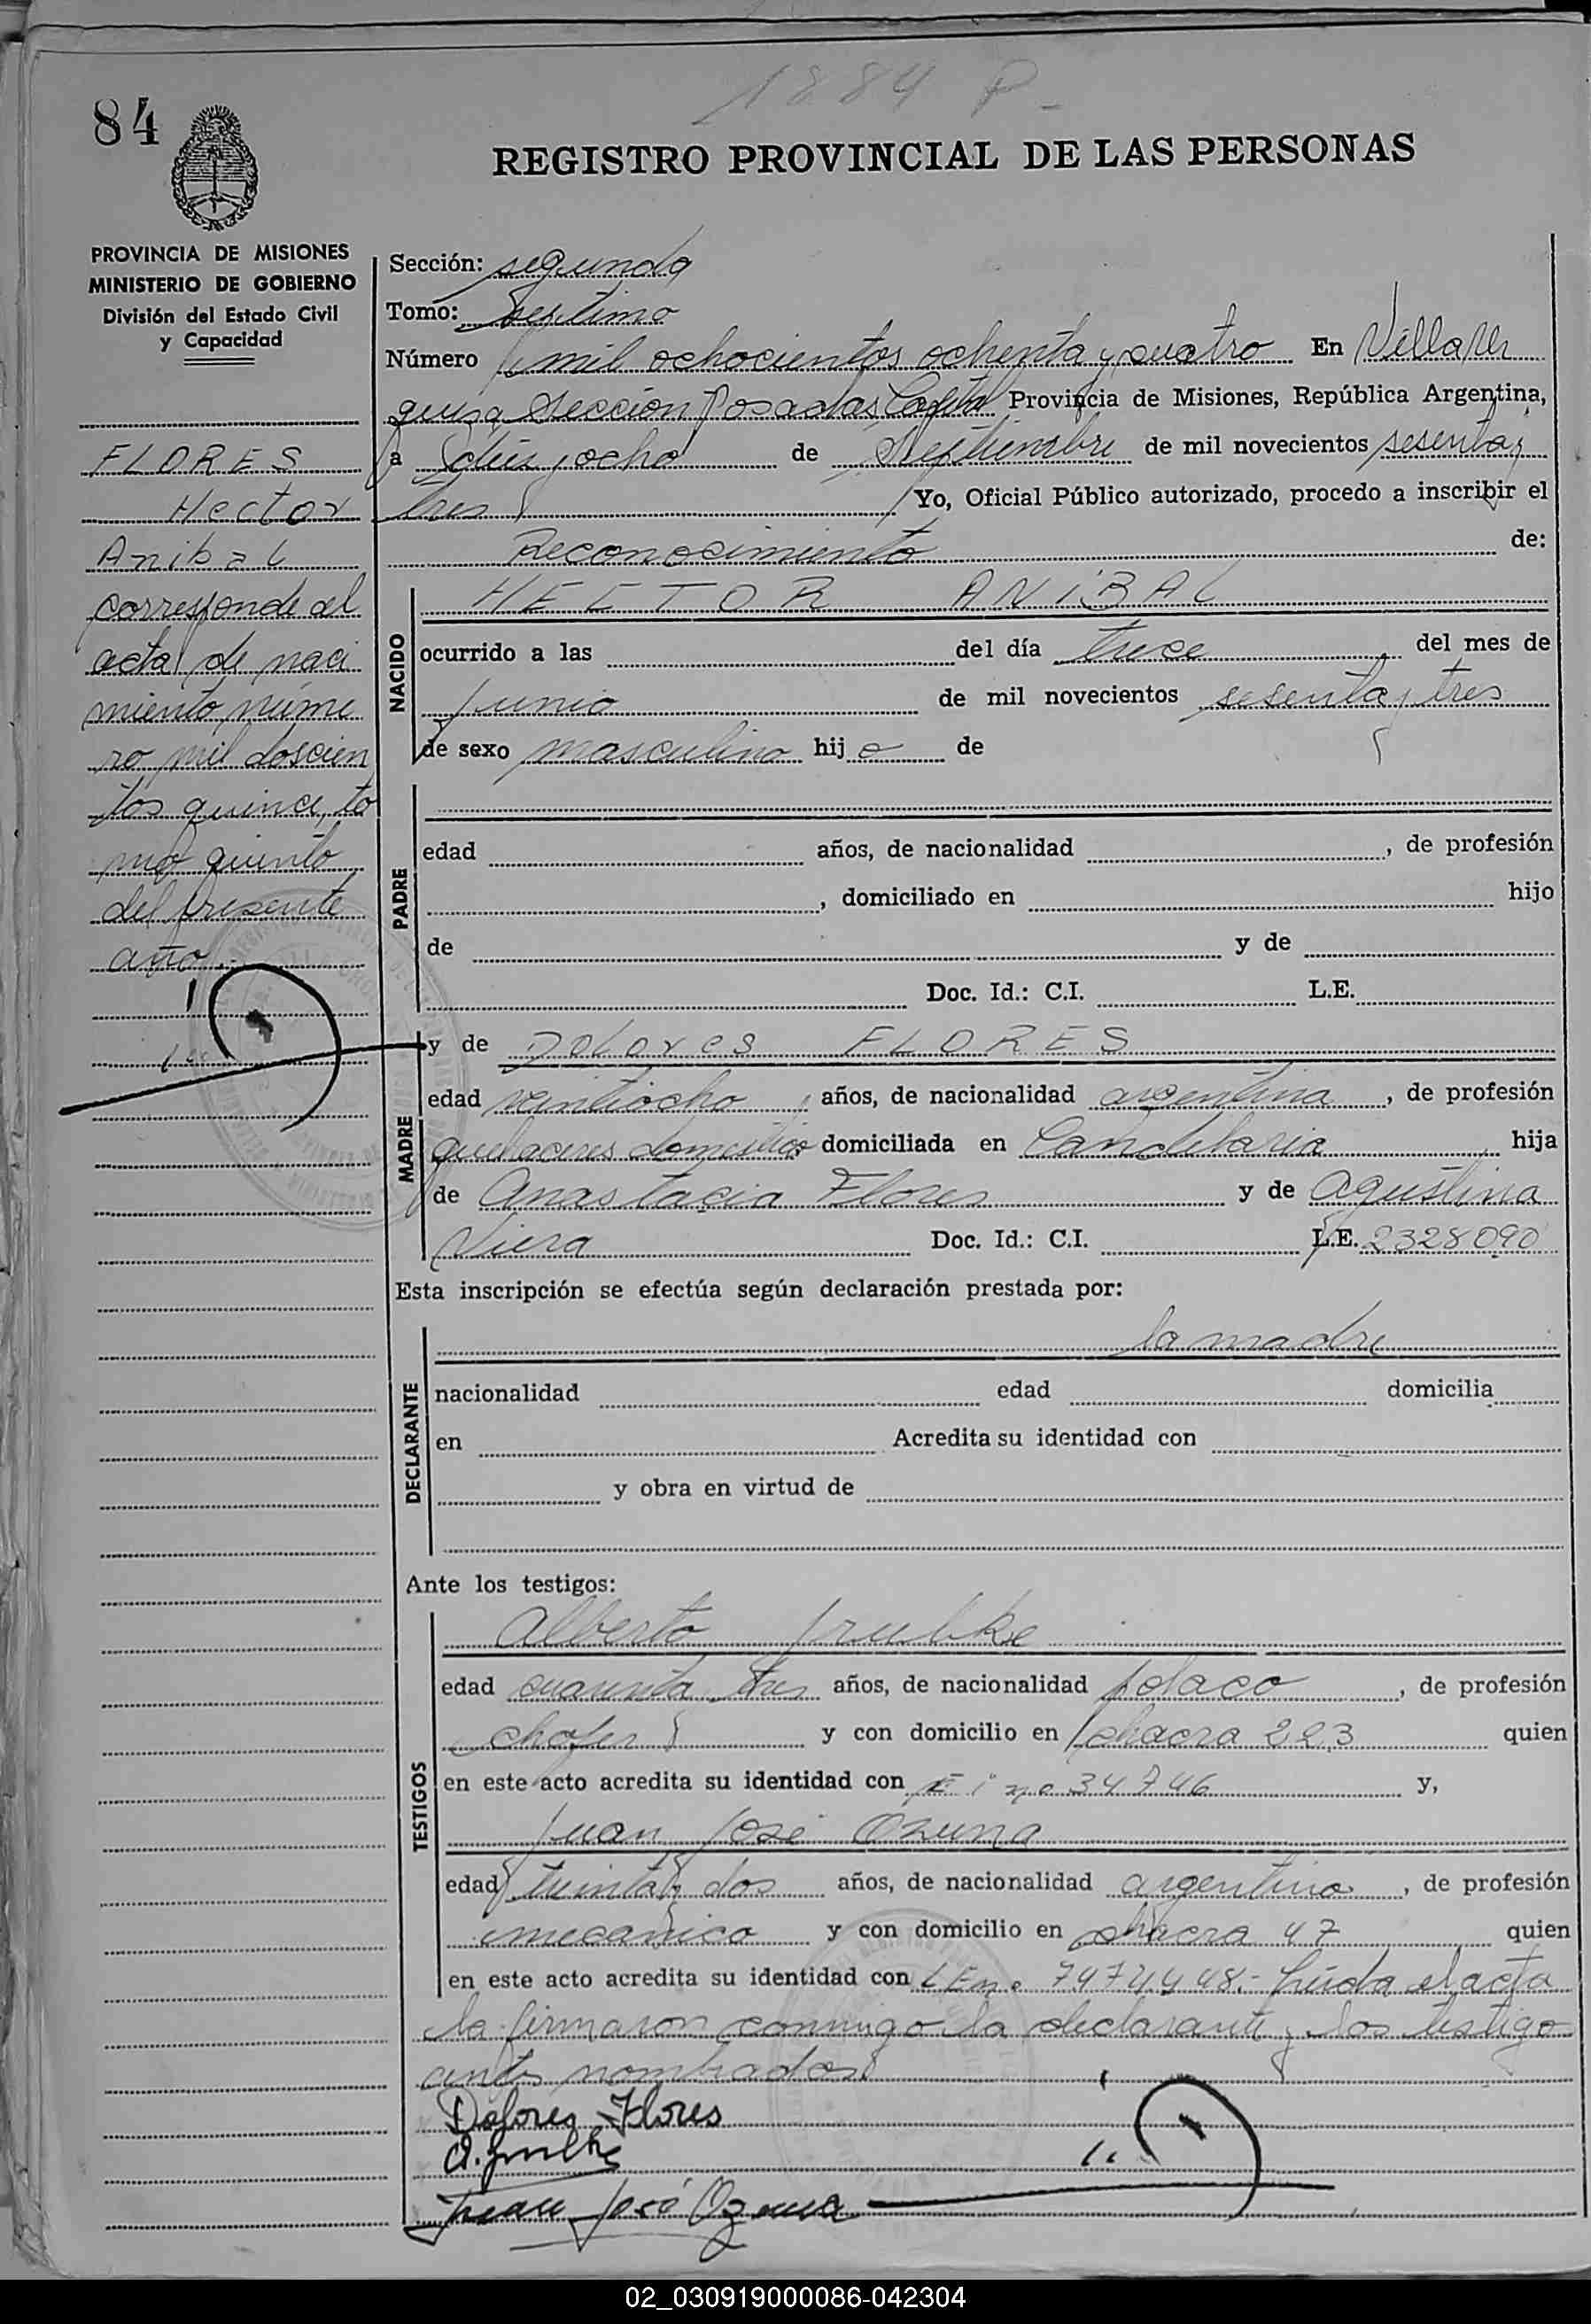 1884 P-
84
REGISTRO PROVINCIAL DE LAS PERSONAS
PROVINCIA DE MISIONES
MINISTERIO DE GOBIERNO
División del Estado Civil
y Capacidad
FLORES
Hector
Anibal
corresponde al
acta de naci
miento núme
ro mil doscien
tos quince, to
mo quinto
del presente
año.-
Sección: segunda
Tomo: septimo
Número mil ochocientos ochenta y cuatro En Villa Ur
quiza Sección Posadas Capital Provincia de Misiones, República Argentina,
a dieciocho de Septiembre de mil novecientos sesenta y
tres Yo, Oficial Público autorizado, procedo a inscribir el
Reconocimiento de:
NACIDO
HECTOR ANIBAL
ocurrido a las del día trece del mes de
junio de mil novecientos sesenta y tres
de sexo masculino hijo de
PADRE
edad años, de nacionalidad , de profesión
, domiciliado en hijo
de y de
Doc. Id.: C.I. L.E.
MADRE
y de Dolores FLORES
edad veintiocho años, de nacionalidad argentina , de profesión
quehaceres domesticos domiciliada en Candelaria hija
de Anastacia Flores y de Agustina
Viera Doc. Id.: C.I. L.E. 2328090
Esta inscripción se efectúa según declaración prestada por:
DECLARANTE
la madre
nacionalidad edad domicilia
en Acredita su identidad con
y obra en virtud de
Ante los testigos:
TESTIGOS
Alberto
edad cuarenta y tres años, de nacionalidad polaco , de profesión
chofer y con domicilio en chacra 223 quien
en este acto acredita su identidad con 34746 y,
Juan José Ozuna
edad treinta y dos años, de nacionalidad argentino , de profesión
mecanico y con domicilio en chacra 47 quien
en este acto acredita su identidad con LE no 7474448.- Leida el acta
la firmaron conmigo la declarante y los testigo
antes nombrados
Dolores Flores
Juan José Ozuna
02_030919000086-042304